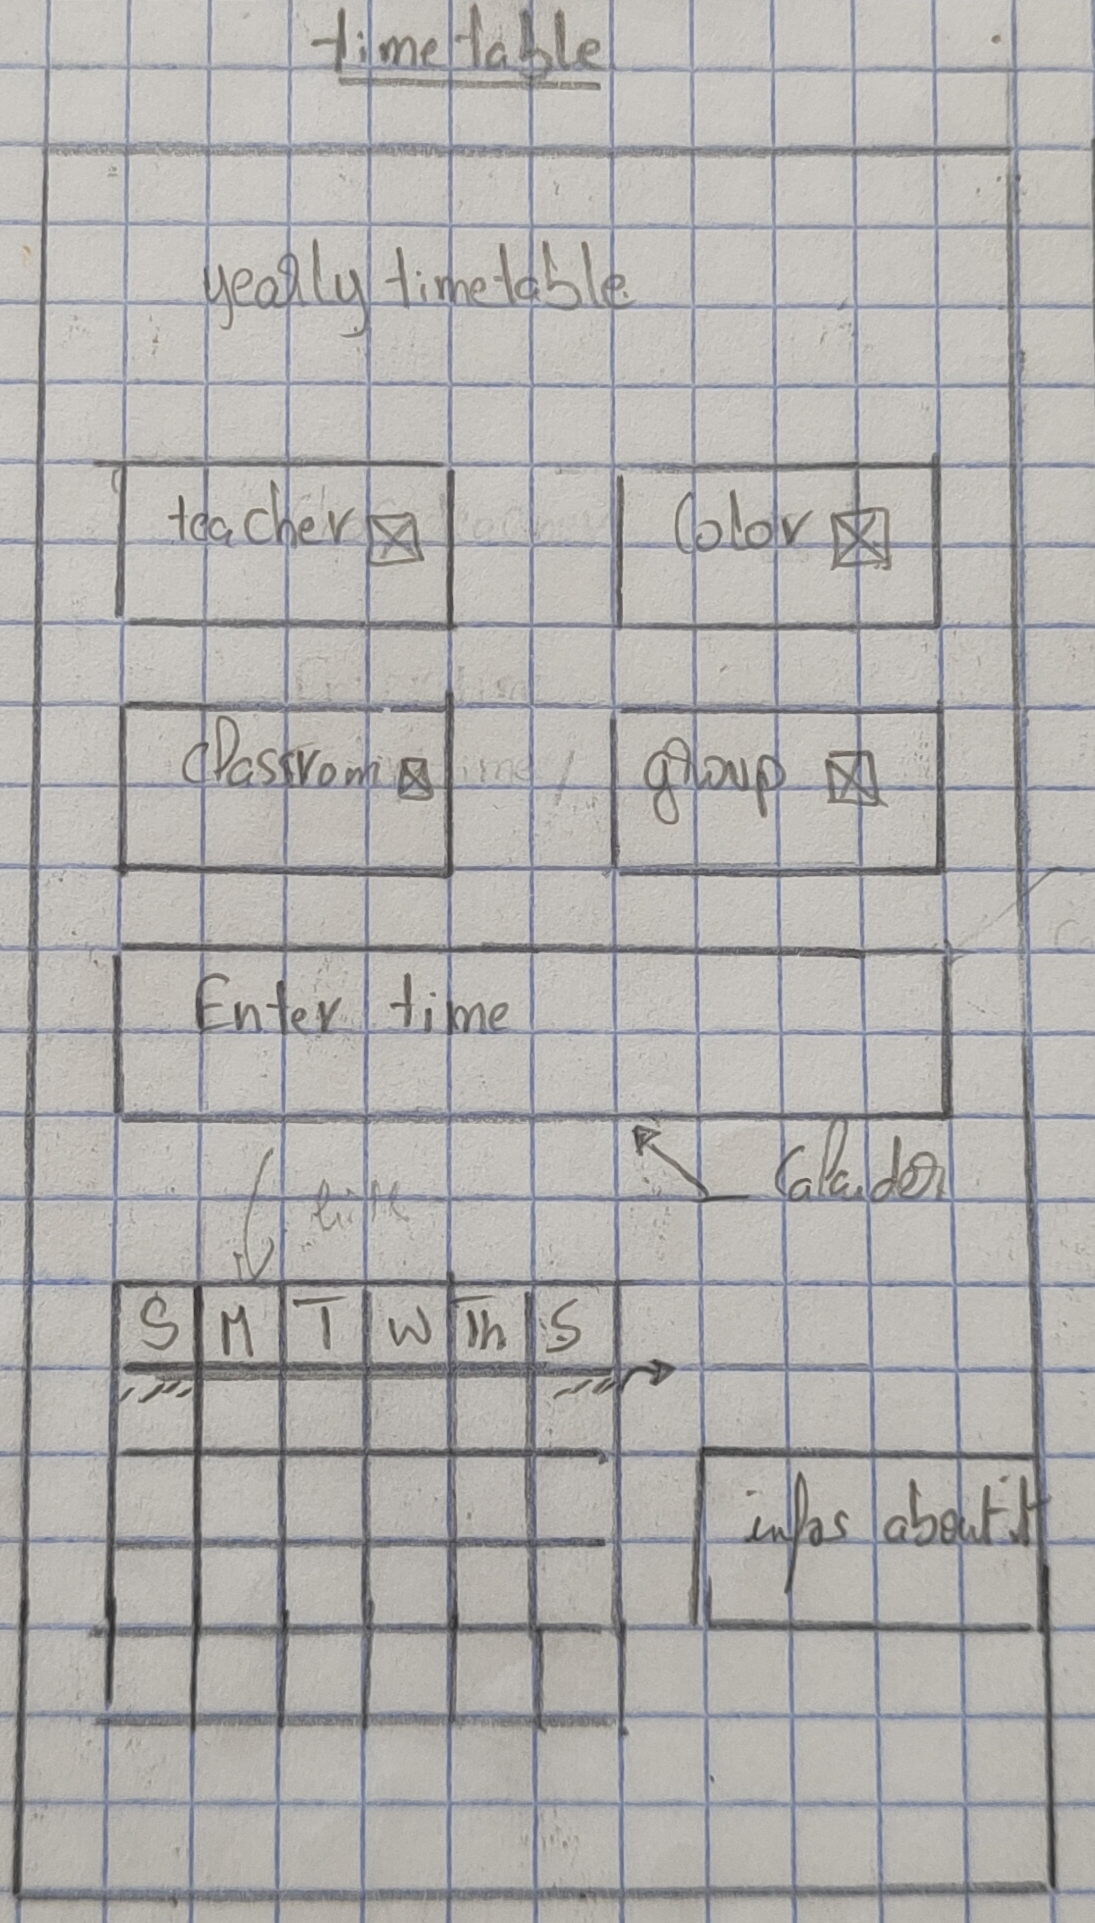 timetable
yearly timetable
teacher
Color
classrom
group
Enter time
S M T W Th S
infos about it